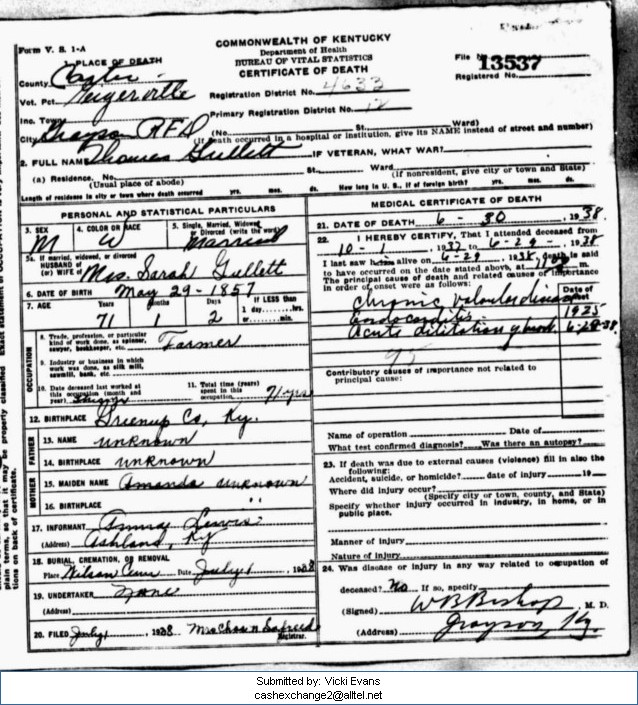 COMMONWEALTH OF KENTUCKY
Form V. S. 1-A
Department of Health
BUREAU OF VITAL STATISTICS
CERTIFICATE OF DEATH
File No. 13537
Registered No.
1. PLACE OF DEATH
County Carter
Vot. Pct. Geigerville
Registration District No. 4633
Inc. Town
Primary Registration District No.
City Grayson RFD (No. St. Ward)
(If death occurred in a hospital or institution, give its NAME instead of street and number)
2. FULL NAME Thomas Gullett IF VETERAN, WHAT WAR?
(a) Residence. No. St. Ward
(Usual place of abode) (If nonresident, give city or town and State)
Length of residence in city or town where death occurred yrs. mos. ds. How long in U. S., if of foreign birth? yrs. mos. ds.
PERSONAL AND STATISTICAL PARTICULARS
3. SEX M
4. COLOR OR RACE W
5. Single, Married, Widowed, or Divorced (write the word) Married
5a. If married, widowed, or divorced
HUSBAND of
(or) WIFE of Mrs. Sarah Gullett
6. DATE OF BIRTH May 29-1857
7. AGE Years 71 Months 1 Days 2 If LESS than 1 day hrs. or min.
OCCUPATION
8. Trade, profession, or particular kind of work done, as spinner, sawyer, bookkeeper, etc. Farmer
9. Industry or business in which work was done, as silk mill, sawmill, bank, etc.
10. Date deceased last worked at this occupation (month and year)
11. Total time (years) spent in this occupation 71 yrs
12. BIRTHPLACE Greenup Co, Ky.
FATHER
13. NAME unknown
14. BIRTHPLACE unknown
MOTHER
15. MAIDEN NAME Amanda unknown
16. BIRTHPLACE " "
17. INFORMANT Lewis
(Address) Ashland, Ky
18. BURIAL, CREMATION, OR REMOVAL
Place Wilson Cem Date July 1 1938
19. UNDERTAKER None
(Address)
20. FILED July 1 1938 Mrs Registrar.
MEDICAL CERTIFICATE OF DEATH
21. DATE OF DEATH 6-30, 1938
22. I HEREBY CERTIFY, That I attended deceased from
10-1, 1937 to 6-29-, 1938
I last saw h alive on 6-29, 1938, death is said
to have occurred on the date stated above, at m.
The principal cause of death and related causes of importance in order of onset were as follows:
Date of onset
chronic valvular disease
endocarditis 1925
Acute dilitation of heart 6-28-38
Contributory causes of importance not related to principal cause:
Name of operation Date of
What test confirmed diagnosis? Was there an autopsy?
23. If death was due to external causes (violence) fill in also the following:
Accident, suicide, or homicide? date of injury 19
Where did injury occur?
(Specify city or town, county, and State)
Specify whether injury occurred in industry, in home, or in public place.
Manner of injury
Nature of injury
24. Was disease or injury in any way related to occupation of deceased? No If so, specify
(Signed) W B Bishop, M. D.
(Address) Grayson Ky.
plain terms, so that it may be properly classified
tions on back of certificate.
Submitted by: Vicki Evans
cashexchange2@alltel.net